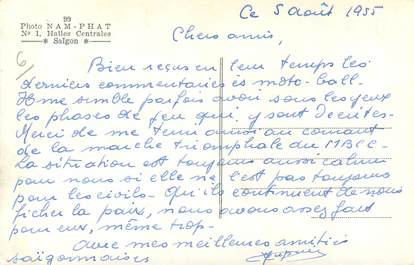 99
Photo NAM-PHAT
Nº 1, Halles Centrales
★ Saïgon ★
Ce 5 août 1955
Chers amis,
6/
Bien reçus en leur temps les
derniers commentaires ès moto-ball.
Il me semble parfois avoir sous les yeux
les phases de jeu qui y sont décrites.
Merci de me tenir aussi au courant
de la marche triomphale du MBCC.
La situation est toujours aussi calme
pour nous si elle ne l'est pas toujours
pour les civils. Qu'ils continuent de nous
ficher la paix, nous avons assez fait
pour eux, même trop.
Avec mes meilleures amitiés
saïgonnaises